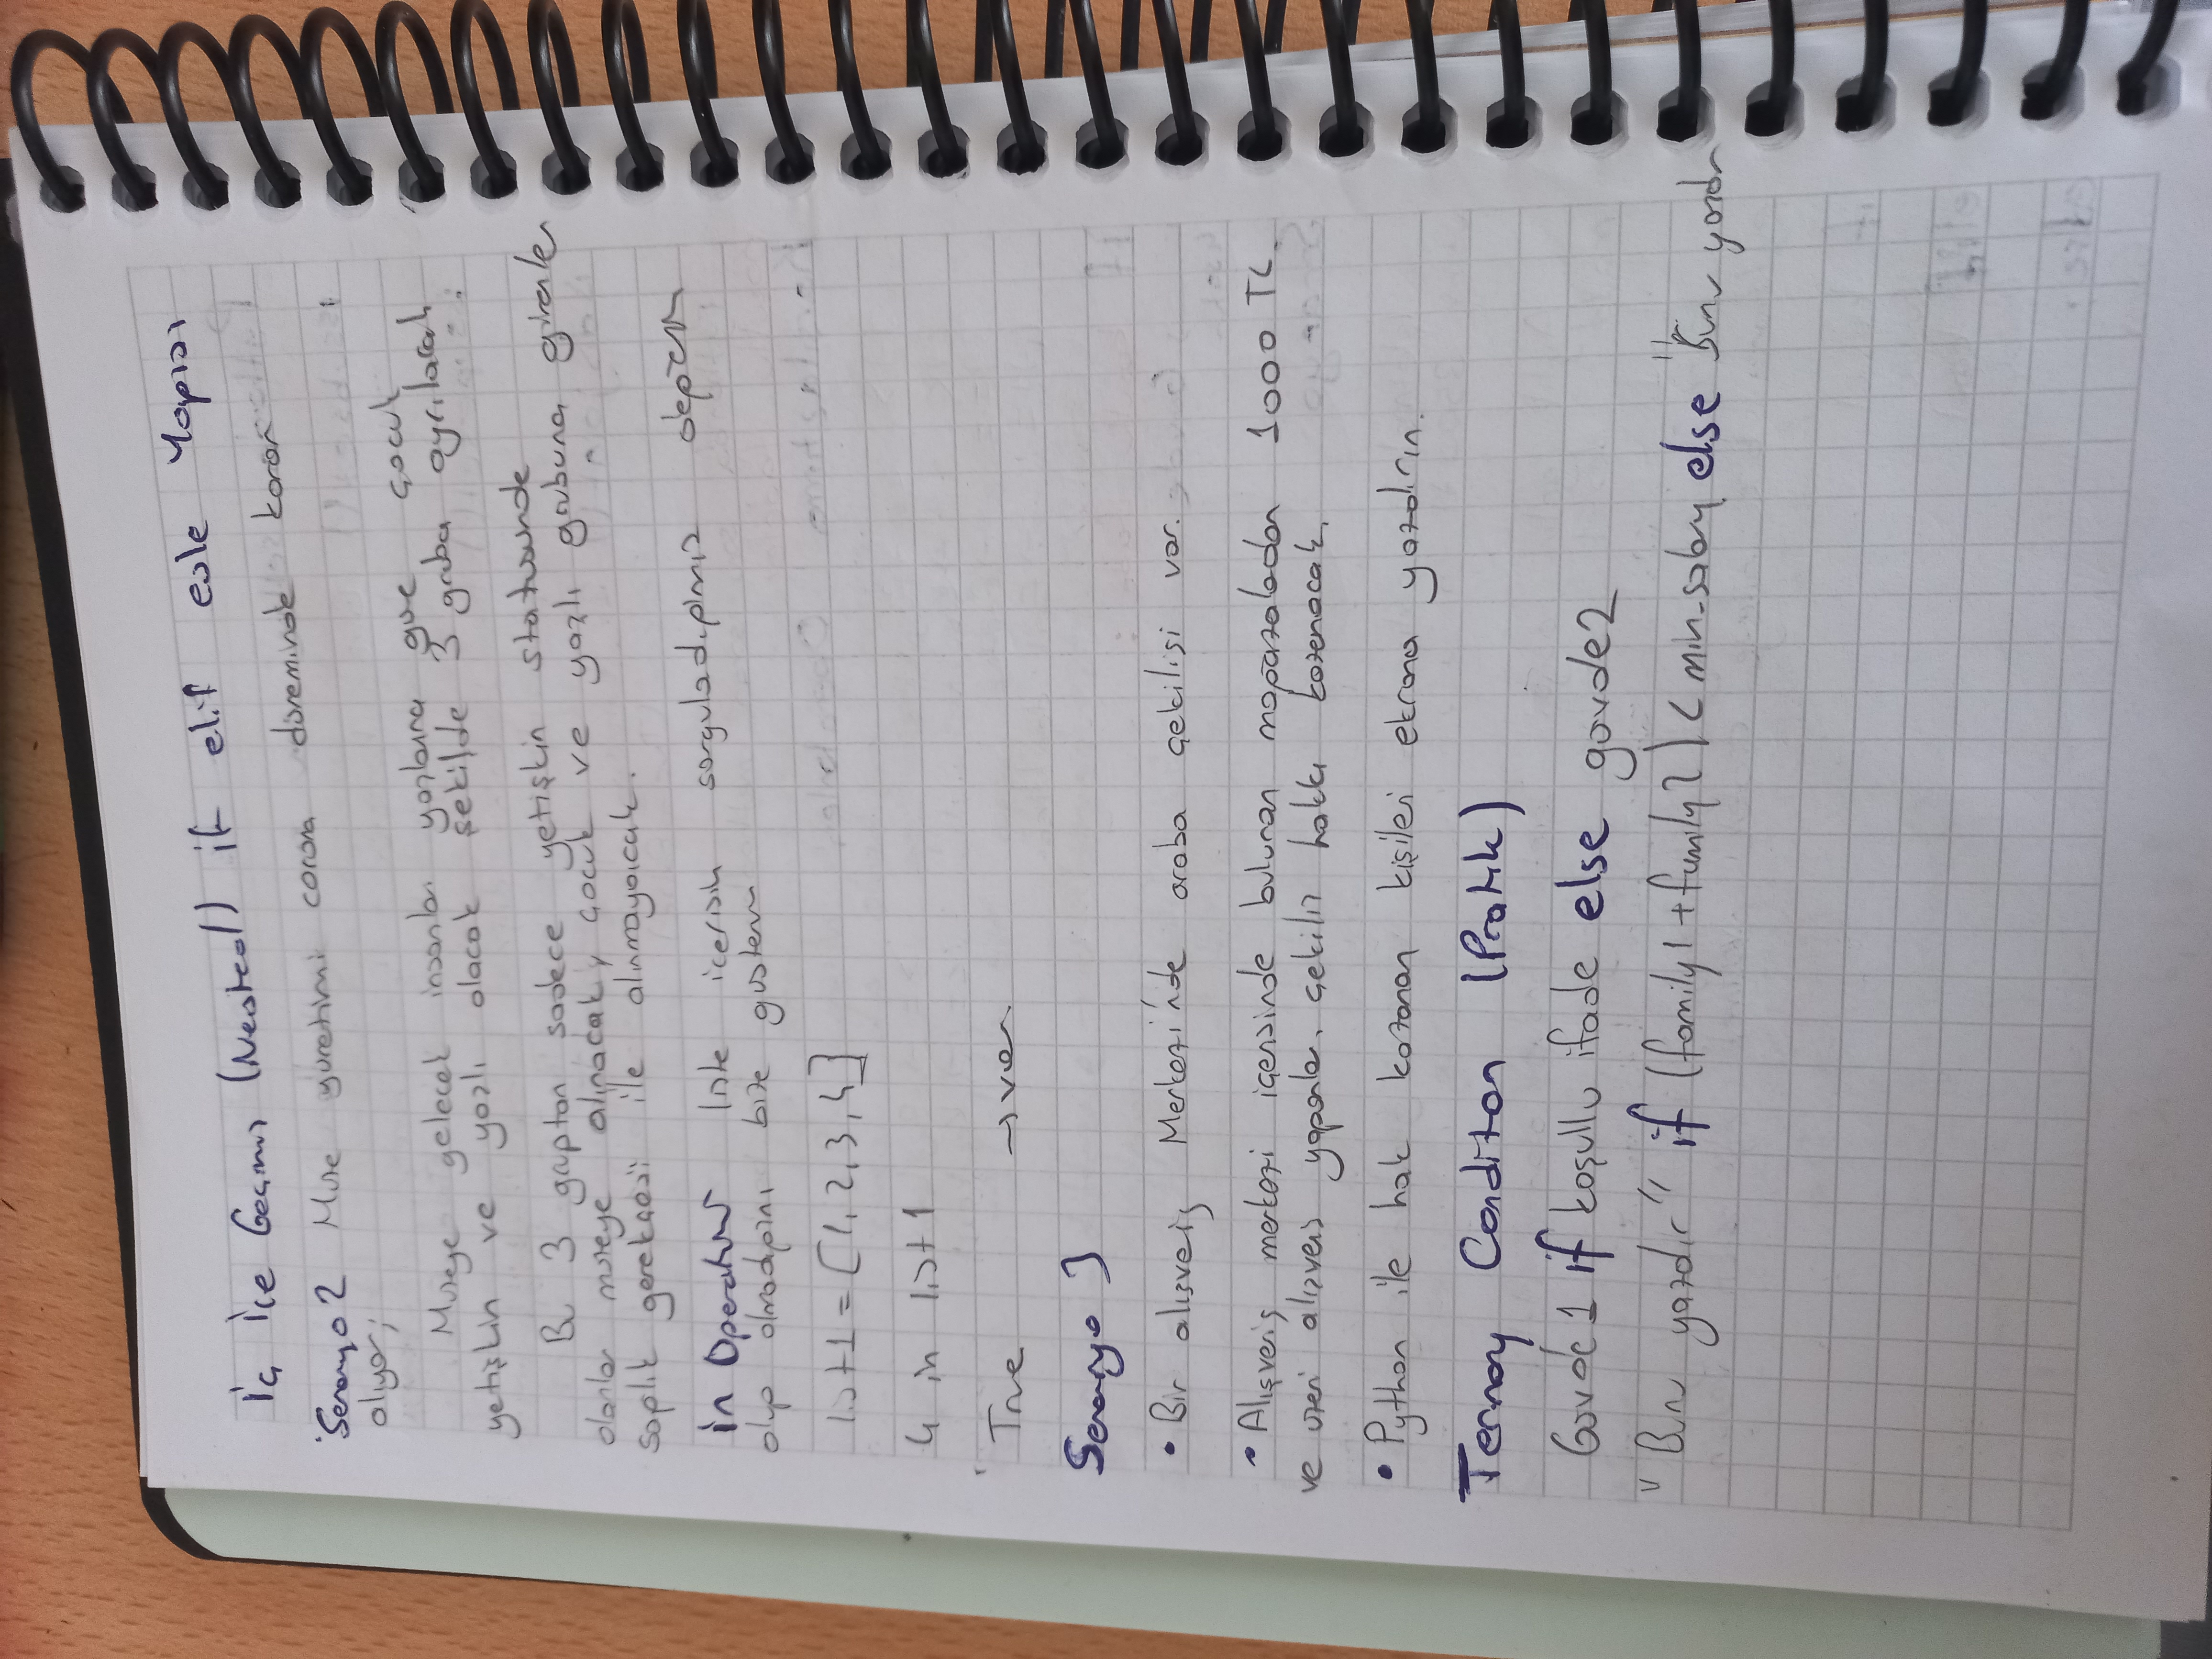 İç İçe Geçmiş (Nested) if elif else Yapısı
Senaryo 2 Müze yönetimi corona döneminde karar
alıyor;
Müzeye gelecek insanları yaşlarına göre çocuk
yetişkin ve yaşlı olacak şekilde 3 gruba ayrılacak
Bu 3 gruptan sadece yetişkin statüsünde
olanlar müzeye alınacak, çocuk ve yaşlı grubuna girenler
sağlık gerekçesi ile alınmayacak.
in Operatörü liste içerisin sorguladığımız değerin
olup olmadığını bize gösterir
list1 = [1, 2, 3, 4]
4 in list1
True → var
Senaryo 3
• Bir alışveriş Merkezi'nde araba çekilişi var.
• Alışveriş merkezi içersinde bulunan mağazalardan 1000 TL
ve üzeri alışveriş yapanlar çekiliş hakkı kazanacak.
• Python ile hak kazanan kişileri ekrana yazdırın.
Ternary Condition (Pratik)
Govde1 if koşullu ifade else govde2
"Bunu yazdır" if (family1 + family2) < min_salary else "Bunu yazdır